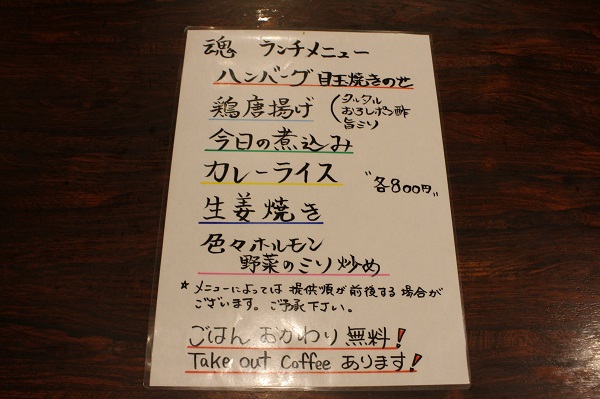 魂 ランチメニュー
ハンバーグ 目玉焼きのせ
鶏唐揚げ (タルタル
おろしポン酢
旨ミソ)
今日の煮込み
カレーライス
"各800円"
生姜焼き
色々ホルモン
野菜のミソ炒め
* メニューによっては 提供順が前後する場合が
ございます。ご了承下さい。
ごはん おかわり 無料!
Take out Coffee あります!